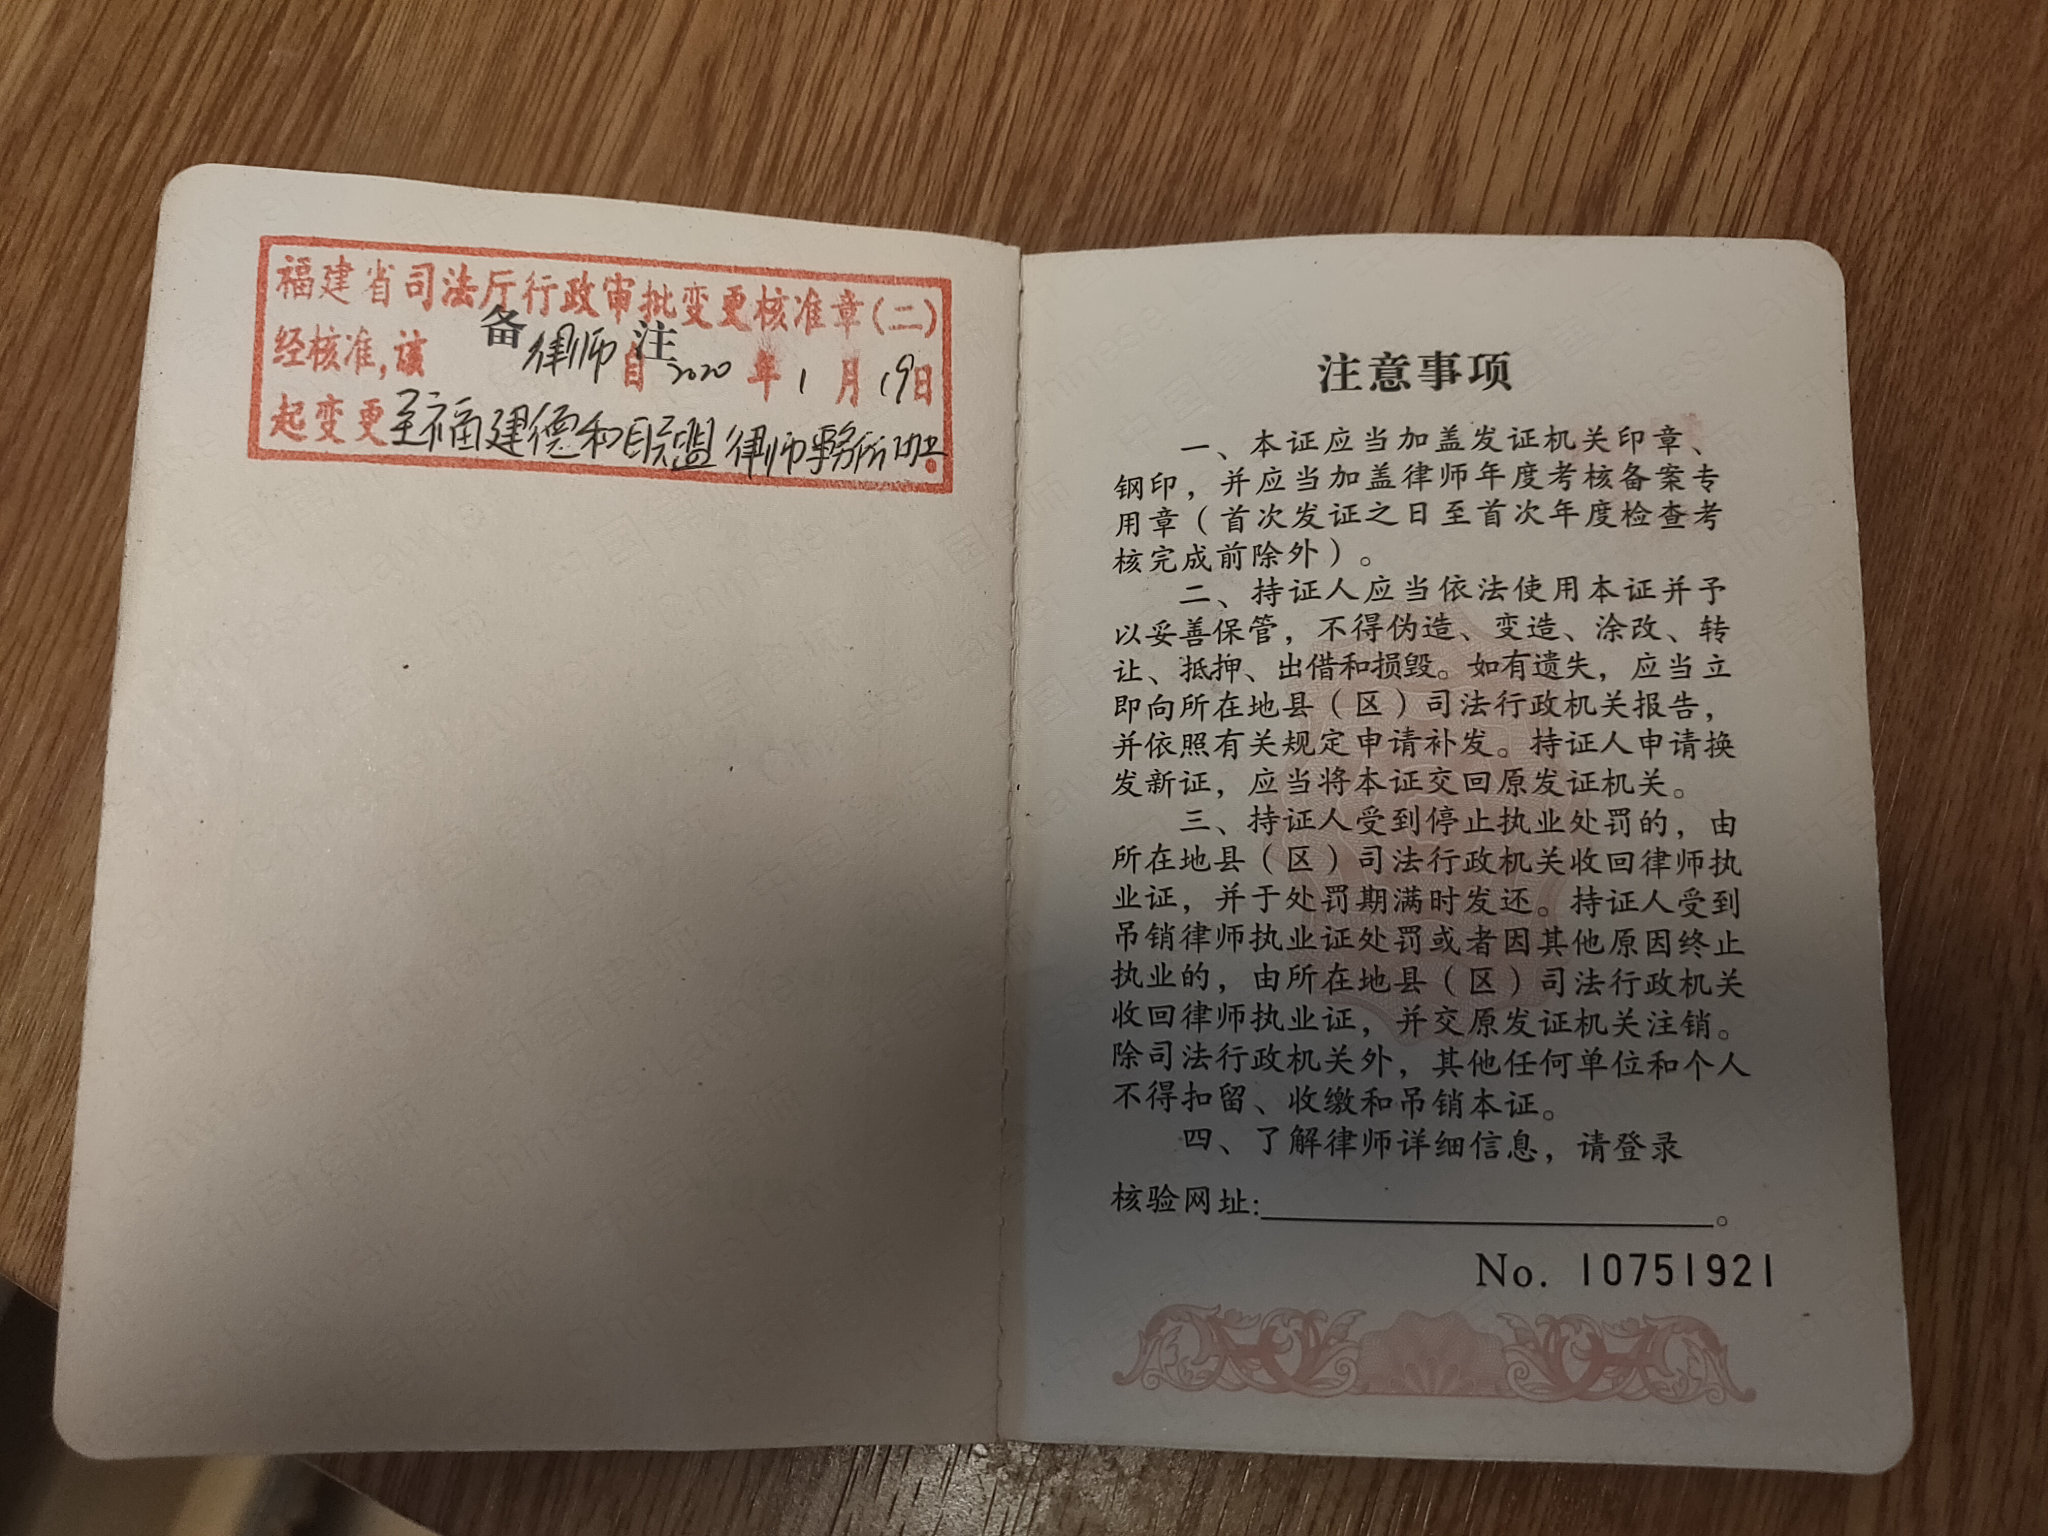 福建省司法厅行政审批变更核准章(二)
备注
经核准,该律师自2020年1月19日
起变更至福建德和联盟律师事务所执业。
注意事项
一、本证应当加盖发证机关印章、
钢印，并应当加盖律师年度考核备案专
用章（首次发证之日至首次年度检查考
核完成前除外）。
二、持证人应当依法使用本证并予
以妥善保管，不得伪造、变造、涂改、转
让、抵押、出借和损毁。如有遗失，应当立
即向所在地县（区）司法行政机关报告，
并依照有关规定申请补发。持证人申请换
发新证，应当将本证交回原发证机关。
三、持证人受到停止执业处罚的，由
所在地县（区）司法行政机关收回律师执
业证，并于处罚期满时发还。持证人受到
吊销律师执业证处罚或者因其他原因终止
执业的，由所在地县（区）司法行政机关
收回律师执业证，并交原发证机关注销。
除司法行政机关外，其他任何单位和个人
不得扣留、收缴和吊销本证。
四、了解律师详细信息，请登录
核验网址:。
No. 10751921